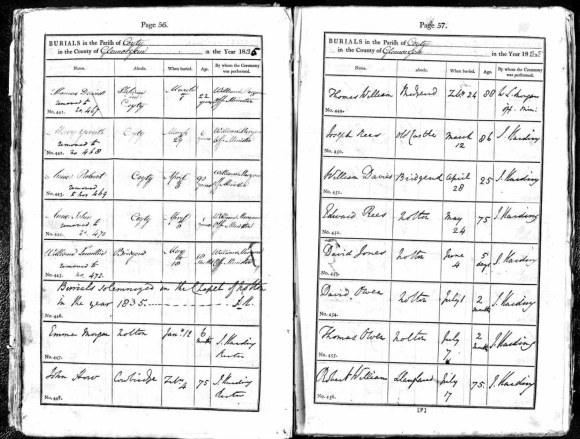 Page 56.
BURIALS in the Parish of Coyty
in the County of Glamorgan in the Year 1835
Name. Abode. When buried. Age. By whom the Ceremony was performed.
removed to
No. 441. no 467
Coyty March William Morgan
removed to Off. Minister
No. 442. no 468
Anne Robert Coyty April 90 William Morgan
removed years Off. Minister
No. 443. to no 469
Anne John Coyty April William Morgan
removed to Off. Minister
No. 444. no. 470
William Bridgend May 10 William Morgan
removed to Off. Minister
No. 445. no. 472.
Burials solemnized in the Chapel of Nolton
in the year 1835. J. H.
No. 446.
Emma Morgan Nolton Janʸ 12 6 months J. Harding
No. 447. Rector
John How Cowbridge Febʸ 4 75 J. Harding
No. 448. Rector
Page 57.
BURIALS in the Parish of Coyty
in the County of Glamorgan in the Year 1835
Name. Abode. When buried. Age. By whom the Ceremony was performed.
Thomas William Febʸ 24 88 Morgan
No. 449. Off. Min:
Joseph Rees Old Castle March 12 86 J. Harding
No. 450.
William Davies Bridgend April 28 25 J. Harding
No. 451.
Edward Rees Nolton May 24 75 J. Harding
No. 452.
David Jones Nolton June 4 5 days J. Harding
No. 453.
David Owen Nolton July 1 2 months J. Harding
No. 454.
Thomas Owen Nolton July 7 2 months J. Harding
No. 455.
Robert William July 17 75 J. Harding
No. 456.